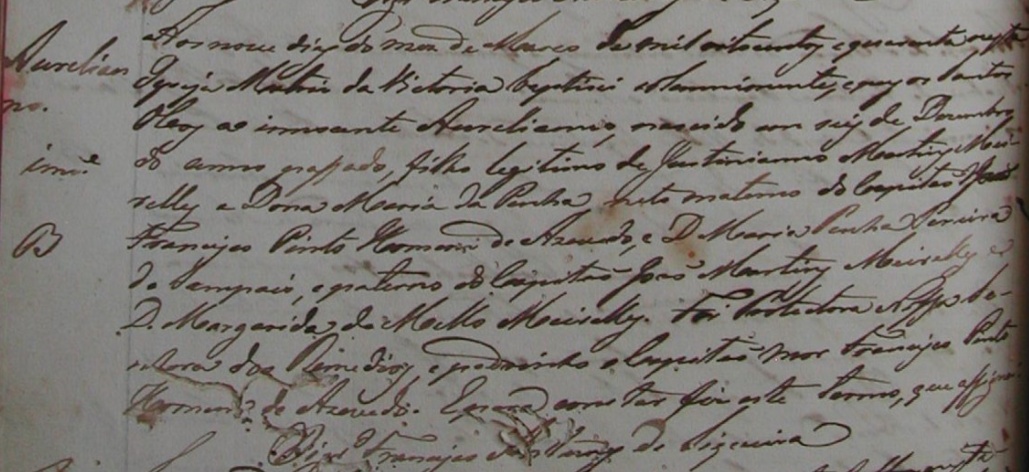 Aurelian
no.
inno.e
B
Aos nove dias do mez de Março de mil oitocentos e quarenta nesta
Igreja Matriz da Victoria baptizei solemnimente, e puz os Santos
Oleos ao innocente Aurelianno, nascido em seis de Dezembro
do anno passado, filho legitimo de Justinianno Martins Mei-
relles e Dona Maria da Penha neto materno do Capitão
Francisco Pinto Homem de Azevedo, e D. Maria Penha Pereira
de Sampaio, e paterno do Capitão João Martins Meirelles e
D. Margarida de Mello Meirelles. Foi Protectora Nossa Se-
nhora dos Remedios, e padrinho o Capitão-mor Francisco Pinto
Homem de Azevedo. E para constar fiz este termo, que assignei.
Francisco de Siqueira